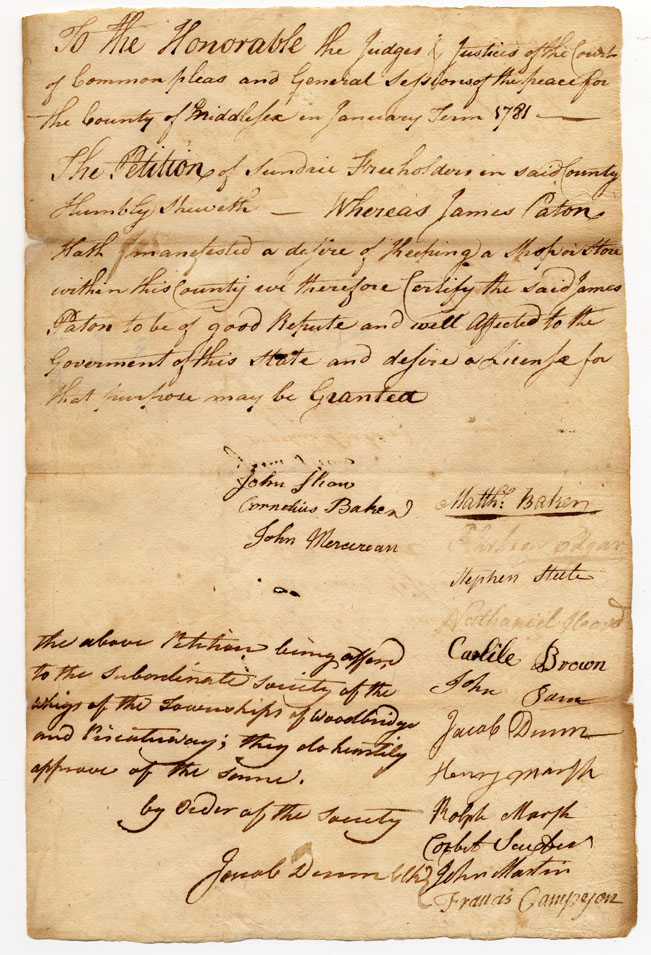 To the Honorable the Judges & Justices of the Court
of Common pleas and General Sessions of the peace for
the County of Middlesex in January Term 1781
The Petition of Sundrie Freeholders in said County
Humbly Sheweth — Whereas James Paton
Hath manifested a desire of Keeping a Shop or Store
within this County we therefore Certify the said James
Paton to be of good Repute and well Affected to the
Goverment of this State and desire a License for
that purpose may be Granted
John Shaw
Cornelius Baker
John Mercerean
Matthw. Baker
Edgar
Stephen Steele
Nathaniel Heard
Carlile Brown
John
Jacob Dunn
Henry Marsh
Ralph Marsh
Corbet
John Martin
Francis Campyon
the above Petition being offerd
to the Subordinate Society of the
whigs of the Townships of Woodbridge
and Piscataway; they do heartily
approve of the Same.
by Order of the Society
Jacob Dunn Clk